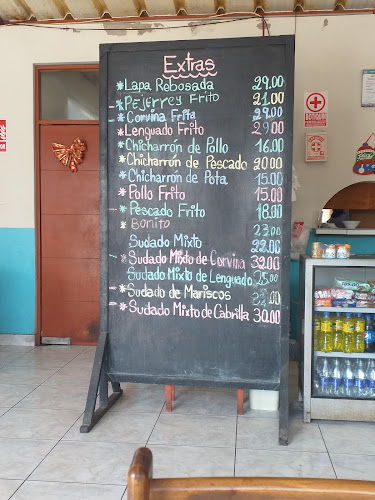 Extras
* Lapa Rebosada 29.00
* Pejerrey Frito 21.00
* Corvina Frita 29.00
* Lenguado Frito 29.00
* Chicharrón de Pollo 16.00
* Chicharrón de Pescado 20.00
* Chicharrón de Pota 15.00
* Pollo Frito 15.00
* Pescado Frito 18.00
* Bonito 23.00
Sudado Mixto 22.00
* Sudado Mixto de Corvina
Sudado Mixto de Lenguado
* Sudado de Mariscos
* Sudado Mixto de Cabrilla 30.00
BOTIQUIN